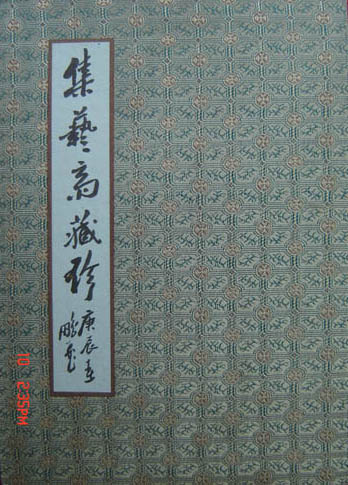 集藝斋藏珍
庚辰
鹏
10 2:35PM